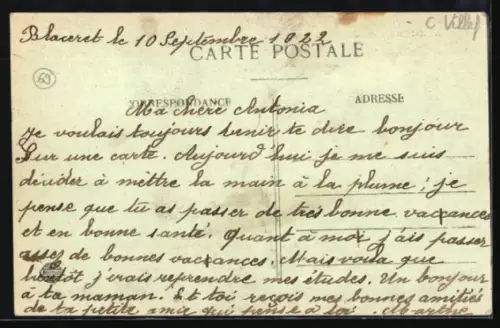 C. Villef
Blaceret le 10 Septembre 1922
CARTE POSTALE
69
CORRESPONDANCE
ADRESSE
Ma chère Antonia
Je voulais toujours venir te dire bonjour
sur une carte. Aujourd'hui je me suis
décider à mettre la main à la plume; je
pense que tu as passer de très bonne vacxances
et en bonne santé. Quant à moi j'ais passer
assez de bonnes vacxances. Mais voila que
bientôt j'irais reprendre mes études. Un bonjour
à ta maman. Et toi reçois mes bonnes amitiés
de ta petite amie qui pense à toi. Marthe